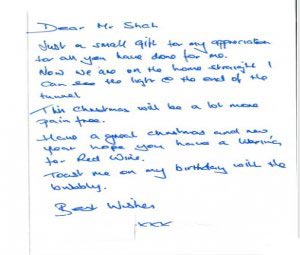 Dear Mr Shah
Just a small gift for my appreciation
for all you have done for me.
Now we are on the home straight I
can see the light @ the end of the
tunnel
This Christmas will be a lot more
pain free.
Have a great christmas and new
year hope you have a
for Red Wine.
Toast me on my birthday with the
bubbly.
Best Wishes
xxx